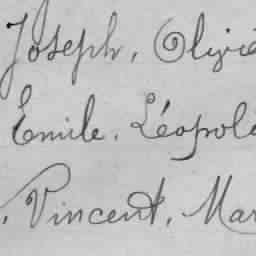 Joseph, Olivie
Emile, Léopold
, Vincent, Mar